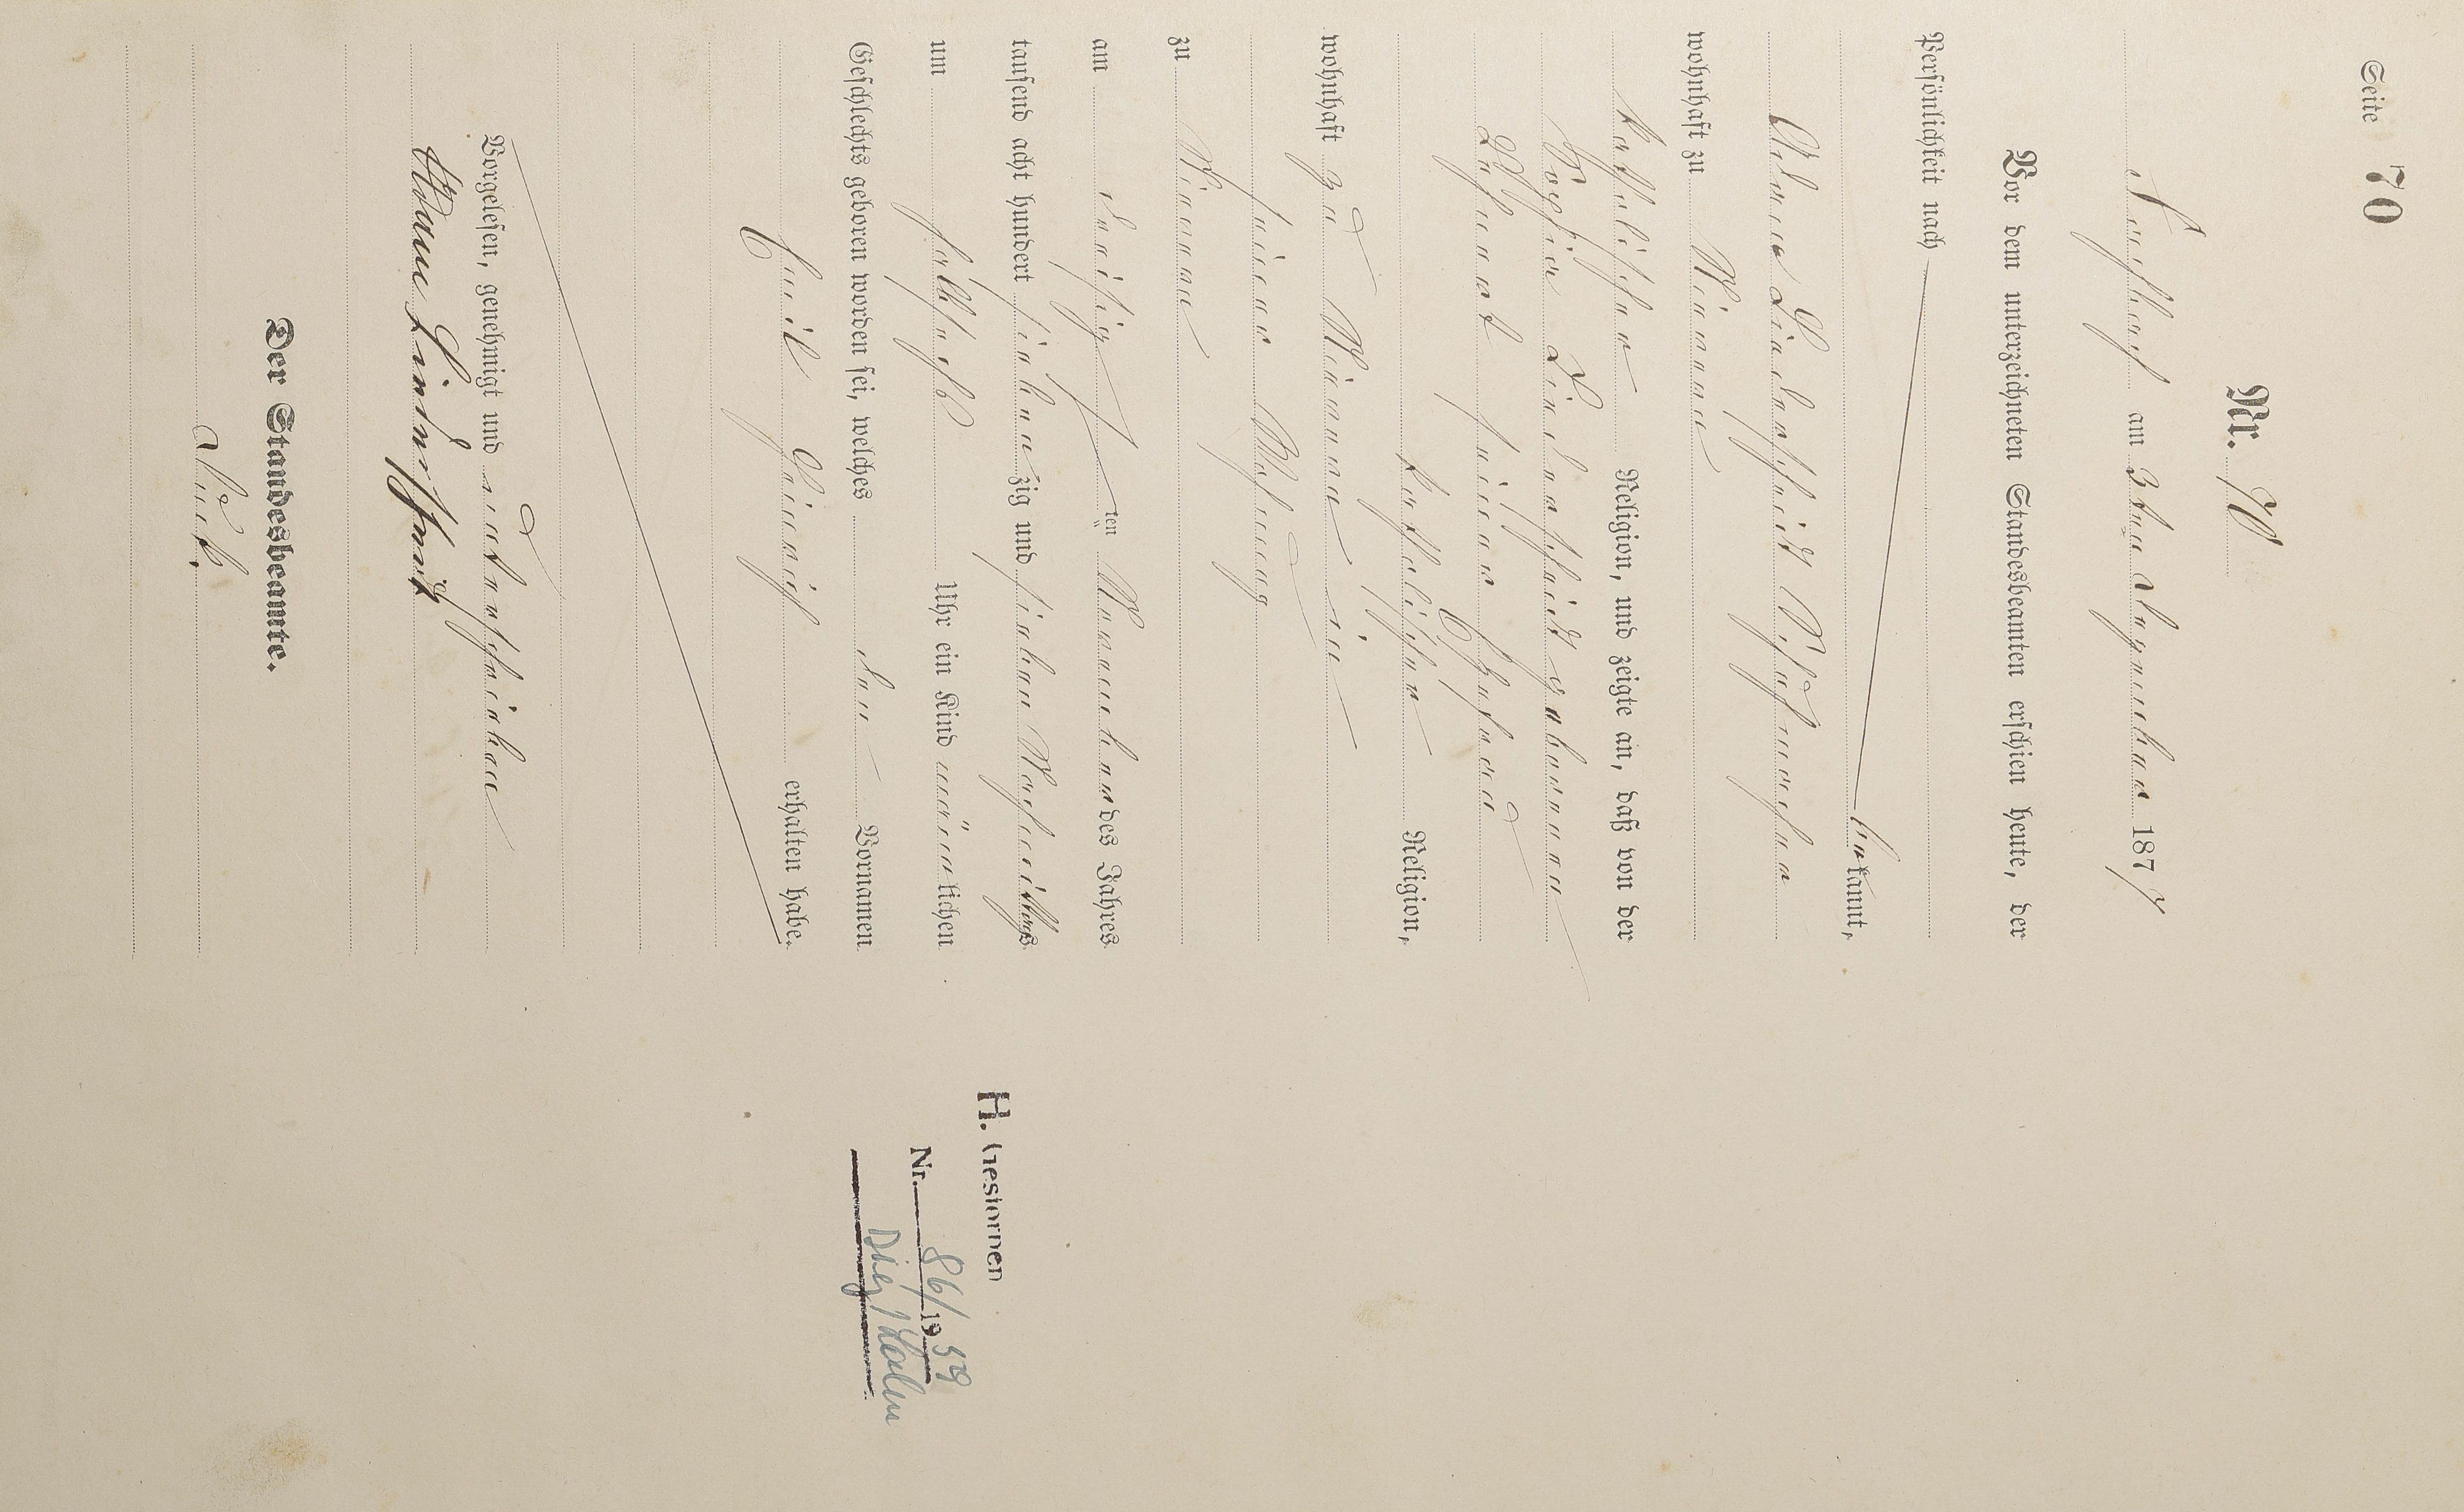 Seite 70
Nr. 70
Fachbach am 3ten Dezember 1877
Vor dem unterzeichneten Standesbeamten erschien heute, der
Persönlichkeit nach
bekannt,
Adam Lindenschmidt
wohnhaft zu Nievern
katholischer Religion, und zeigte an, daß von der
Sophia Lindenschmidt geborenen
seiner Ehefrau
katholischer Religion,
wohnhaft zu Nievern in
seiner Wohnung
zu Nievern
am dreißigten November des Jahres
tausend acht hundert siebenzig und sieben Nachmittags
um halb acht Uhr ein Kind männlichen
Geschlechts geboren worden sei, welches den Vornamen
Emil Heinrich erhalten habe.
Vorgelesen, genehmigt und unterschrieben
Adam Lindenschmidt
Der Standesbeamte.
H. Gestorben
Nr. 86/1959
Diez/Lahn